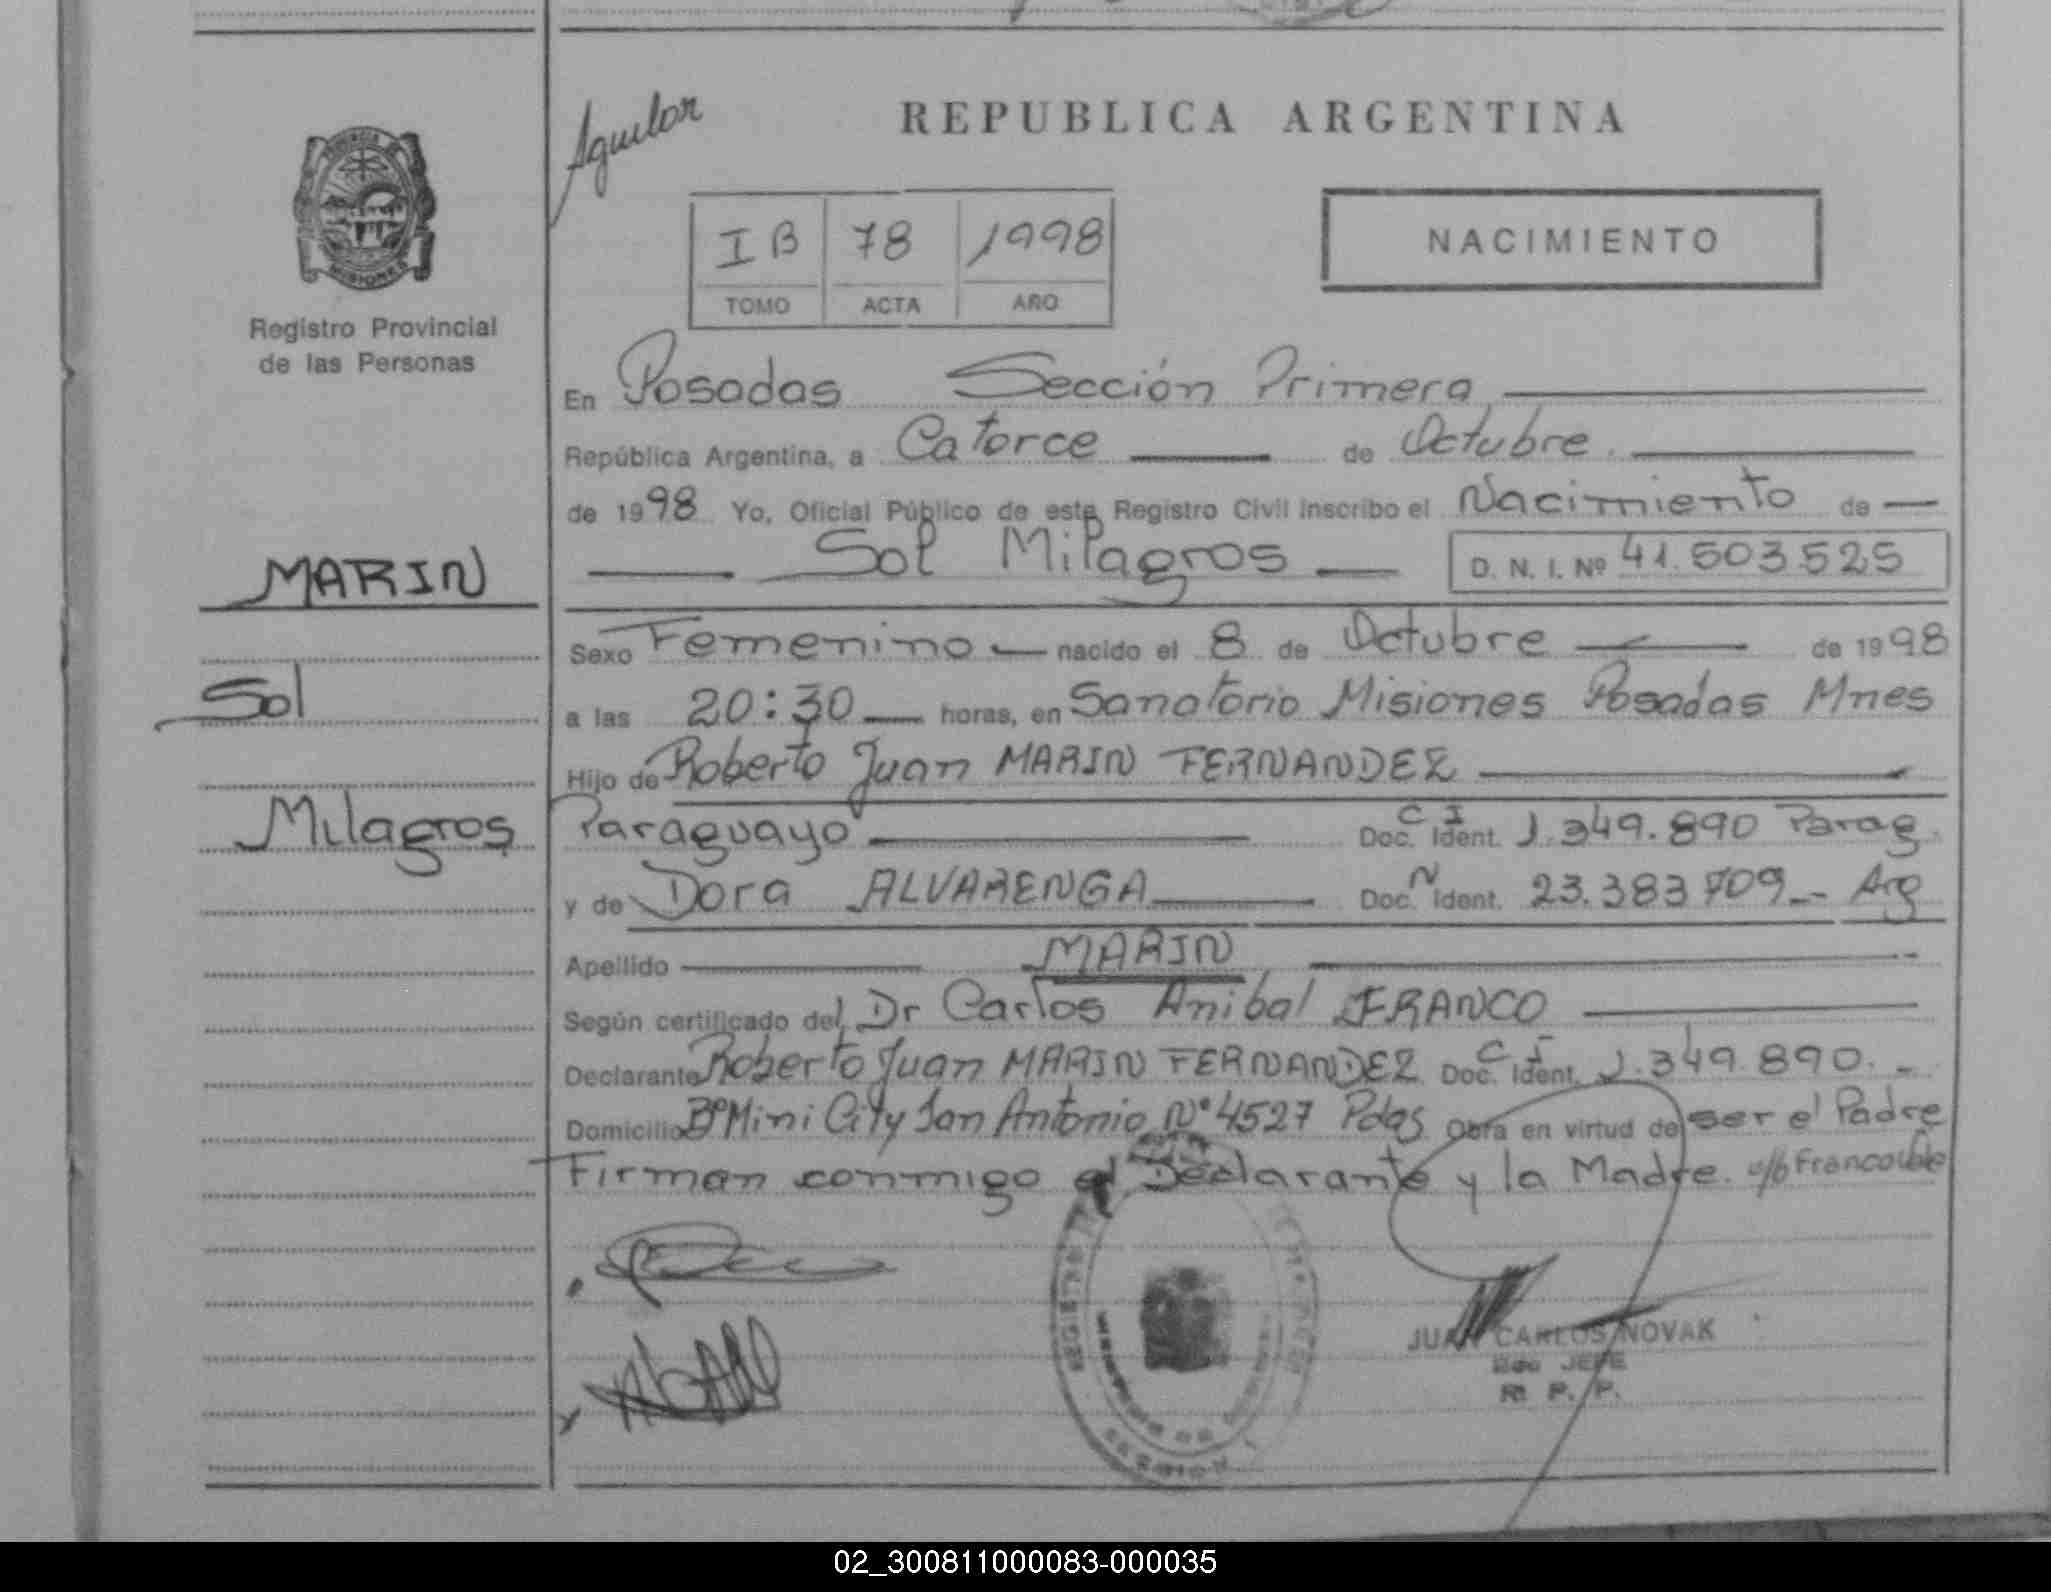 Aguilar
REPUBLICA ARGENTINA
I B 78 1998
TOMO ACTA AÑO
NACIMIENTO
Registro Provincial
de las Personas
En Posadas Sección Primera
República Argentina, a Catorce de Octubre
de 1998 Yo, Oficial Público de este Registro Civil inscribo el Nacimiento de
Sol Milagros D. N. I. Nº 41.503.525
MARIN
Sol
Milagros
Sexo Femenino nacido el 8 de Octubre de 1998
a las 20:30 horas, en Sanatorio Misiones Posadas Mnes
Hijo de Roberto Juan MARIN FERNANDEZ
Paraguayo Doc. Ident. C I 1.349.890 Parag.
y de Dora ALVARENGA Doc. N Ident. 23.383.709 Arg
Apellido MARIN
Según certificado del Dr Carlos Anibal FRANCO
Declarante Roberto Juan MARIN FERNANDEZ Doc. Ident. C I 1.349.890.
Domicilio Bº Mini City San Antonio Nº 4527 Pdas Obra en virtud de ser el Padre
Firman conmigo el Declarante y la Madre.
JUAN CARLOS NOVAK
JEFE
R. P. P.
02_300811000083-000035